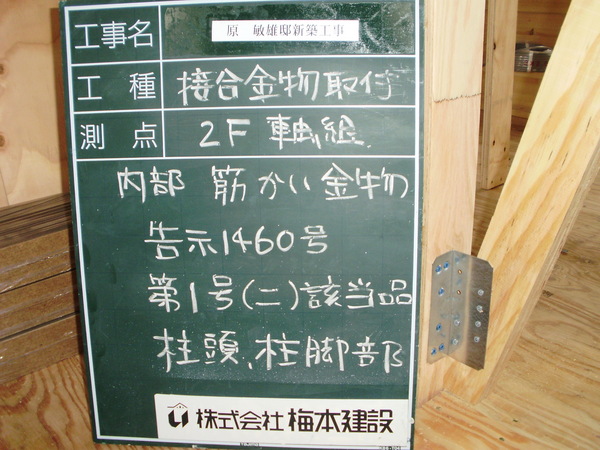 工事名 原 敏雄邸新築工事
工種 接合金物取付
測点 2F 軸組
内部 筋かい金物
告示1460号
第1号(二)該当品
柱頭、柱脚部
株式会社 梅本建設